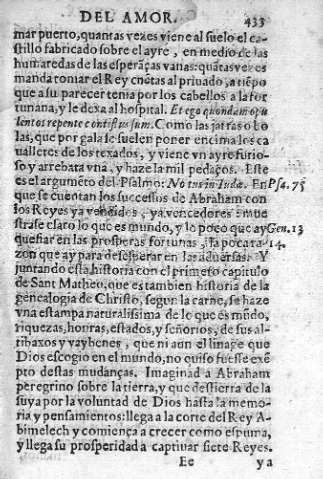 DEL AMOR. 433
mar puerto, quantas vezes viene al suelo el ca-
stillo fabricado sobre el ayre, en medio de las
humaredas de las esperãças vanas: quãtas vezes
manda tomar el Rey cuẽtas al priuado, a tiẽpo
que a su parecer tenia por los cabellos a la for
tuna, y le dexa al hospital. Et ego quondam opu
lentus repente contritus sum. Como las jarras o bo
las, que por gala le suelen poner encima los ca
ualletes de los texados, y viene vn ayre furio-
so y arrebata vna, y haze la mil pedaços. Este
es el argumẽto del Psalmo: Notus in Iudæ. En Psa. 75
que se cuentan los successos de Abraham con
los Reyes ya vencidos, ya vencedores: mue
strase claro lo que es mundo, y lo poco que ay Gen. 13
que fiar en las prosperas fortunas, la poca ra- 14.
zon que ay para desesperar en las aduersas. Y
juntando esta historia con el primero capitulo
de Sant Matheo, que es tambien historia de la
genealogia de Christo, segun la carne, se haze
vna estampa naturalissima de lo que es mũdo,
riquezas, honras, estados, y señorios, de sus al-
tibaxos y vaybenes, que ni aun el linage que
Dios escogio en el mundo, no quiso fuesse exẽ
pto destas mudanças. Imaginad a Abraham
peregrino sobre la tierra, y que destierra de la
suya por la voluntad de Dios hasta la memo-
ria y pensamientos: llega a la corte del Rey A-
bimelech y comiença a crecer como espuma,
y llega su prosperidad a captiuar siete Reyes.
Ee ya